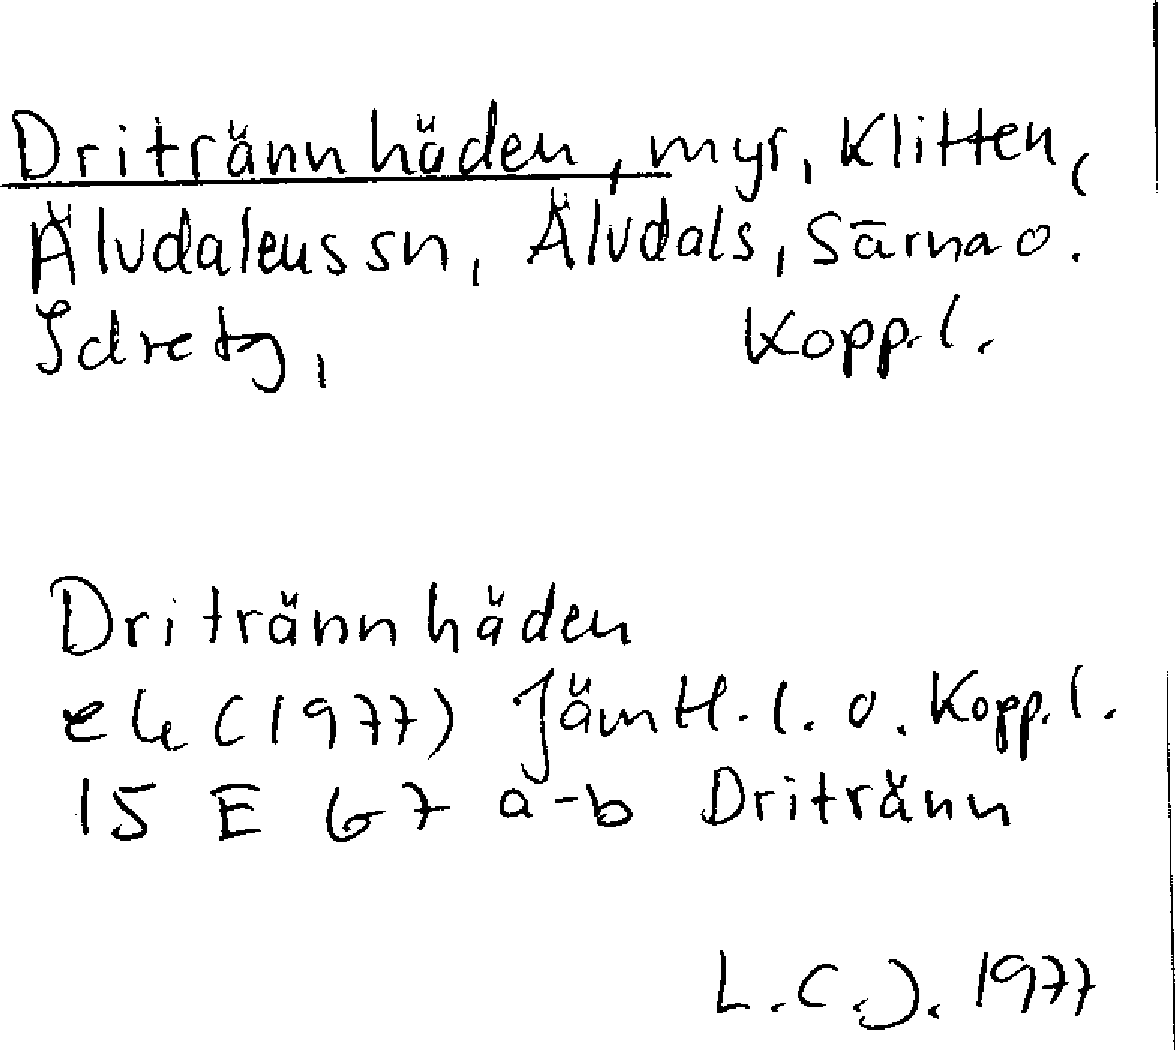 Dritrännhäden, myr, Klitten,
Älvdalens sn, Älvdals, Särna o.
Idre tg, Kopp. l.
Dritrännhäden
ek (1977) Jämtl. l. o. Kopp. l.
15 E 67 a-b Dritränn
L.C.J. 1977